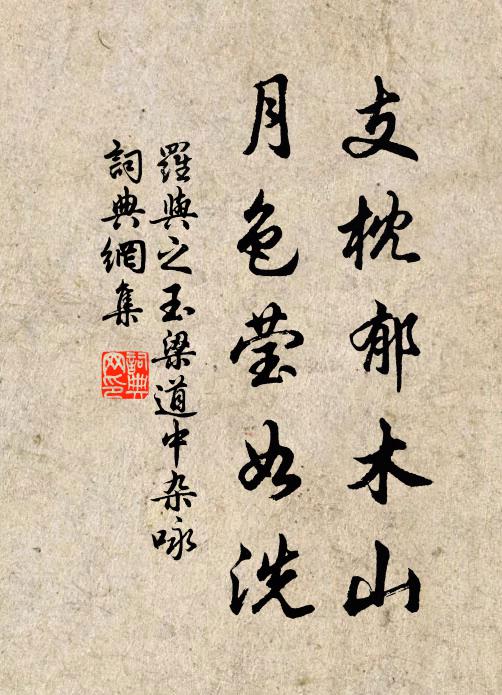 支枕郁木山
月色莹如洗
羅與之玉梁道中杂咏
詞典網集
詞典
网印